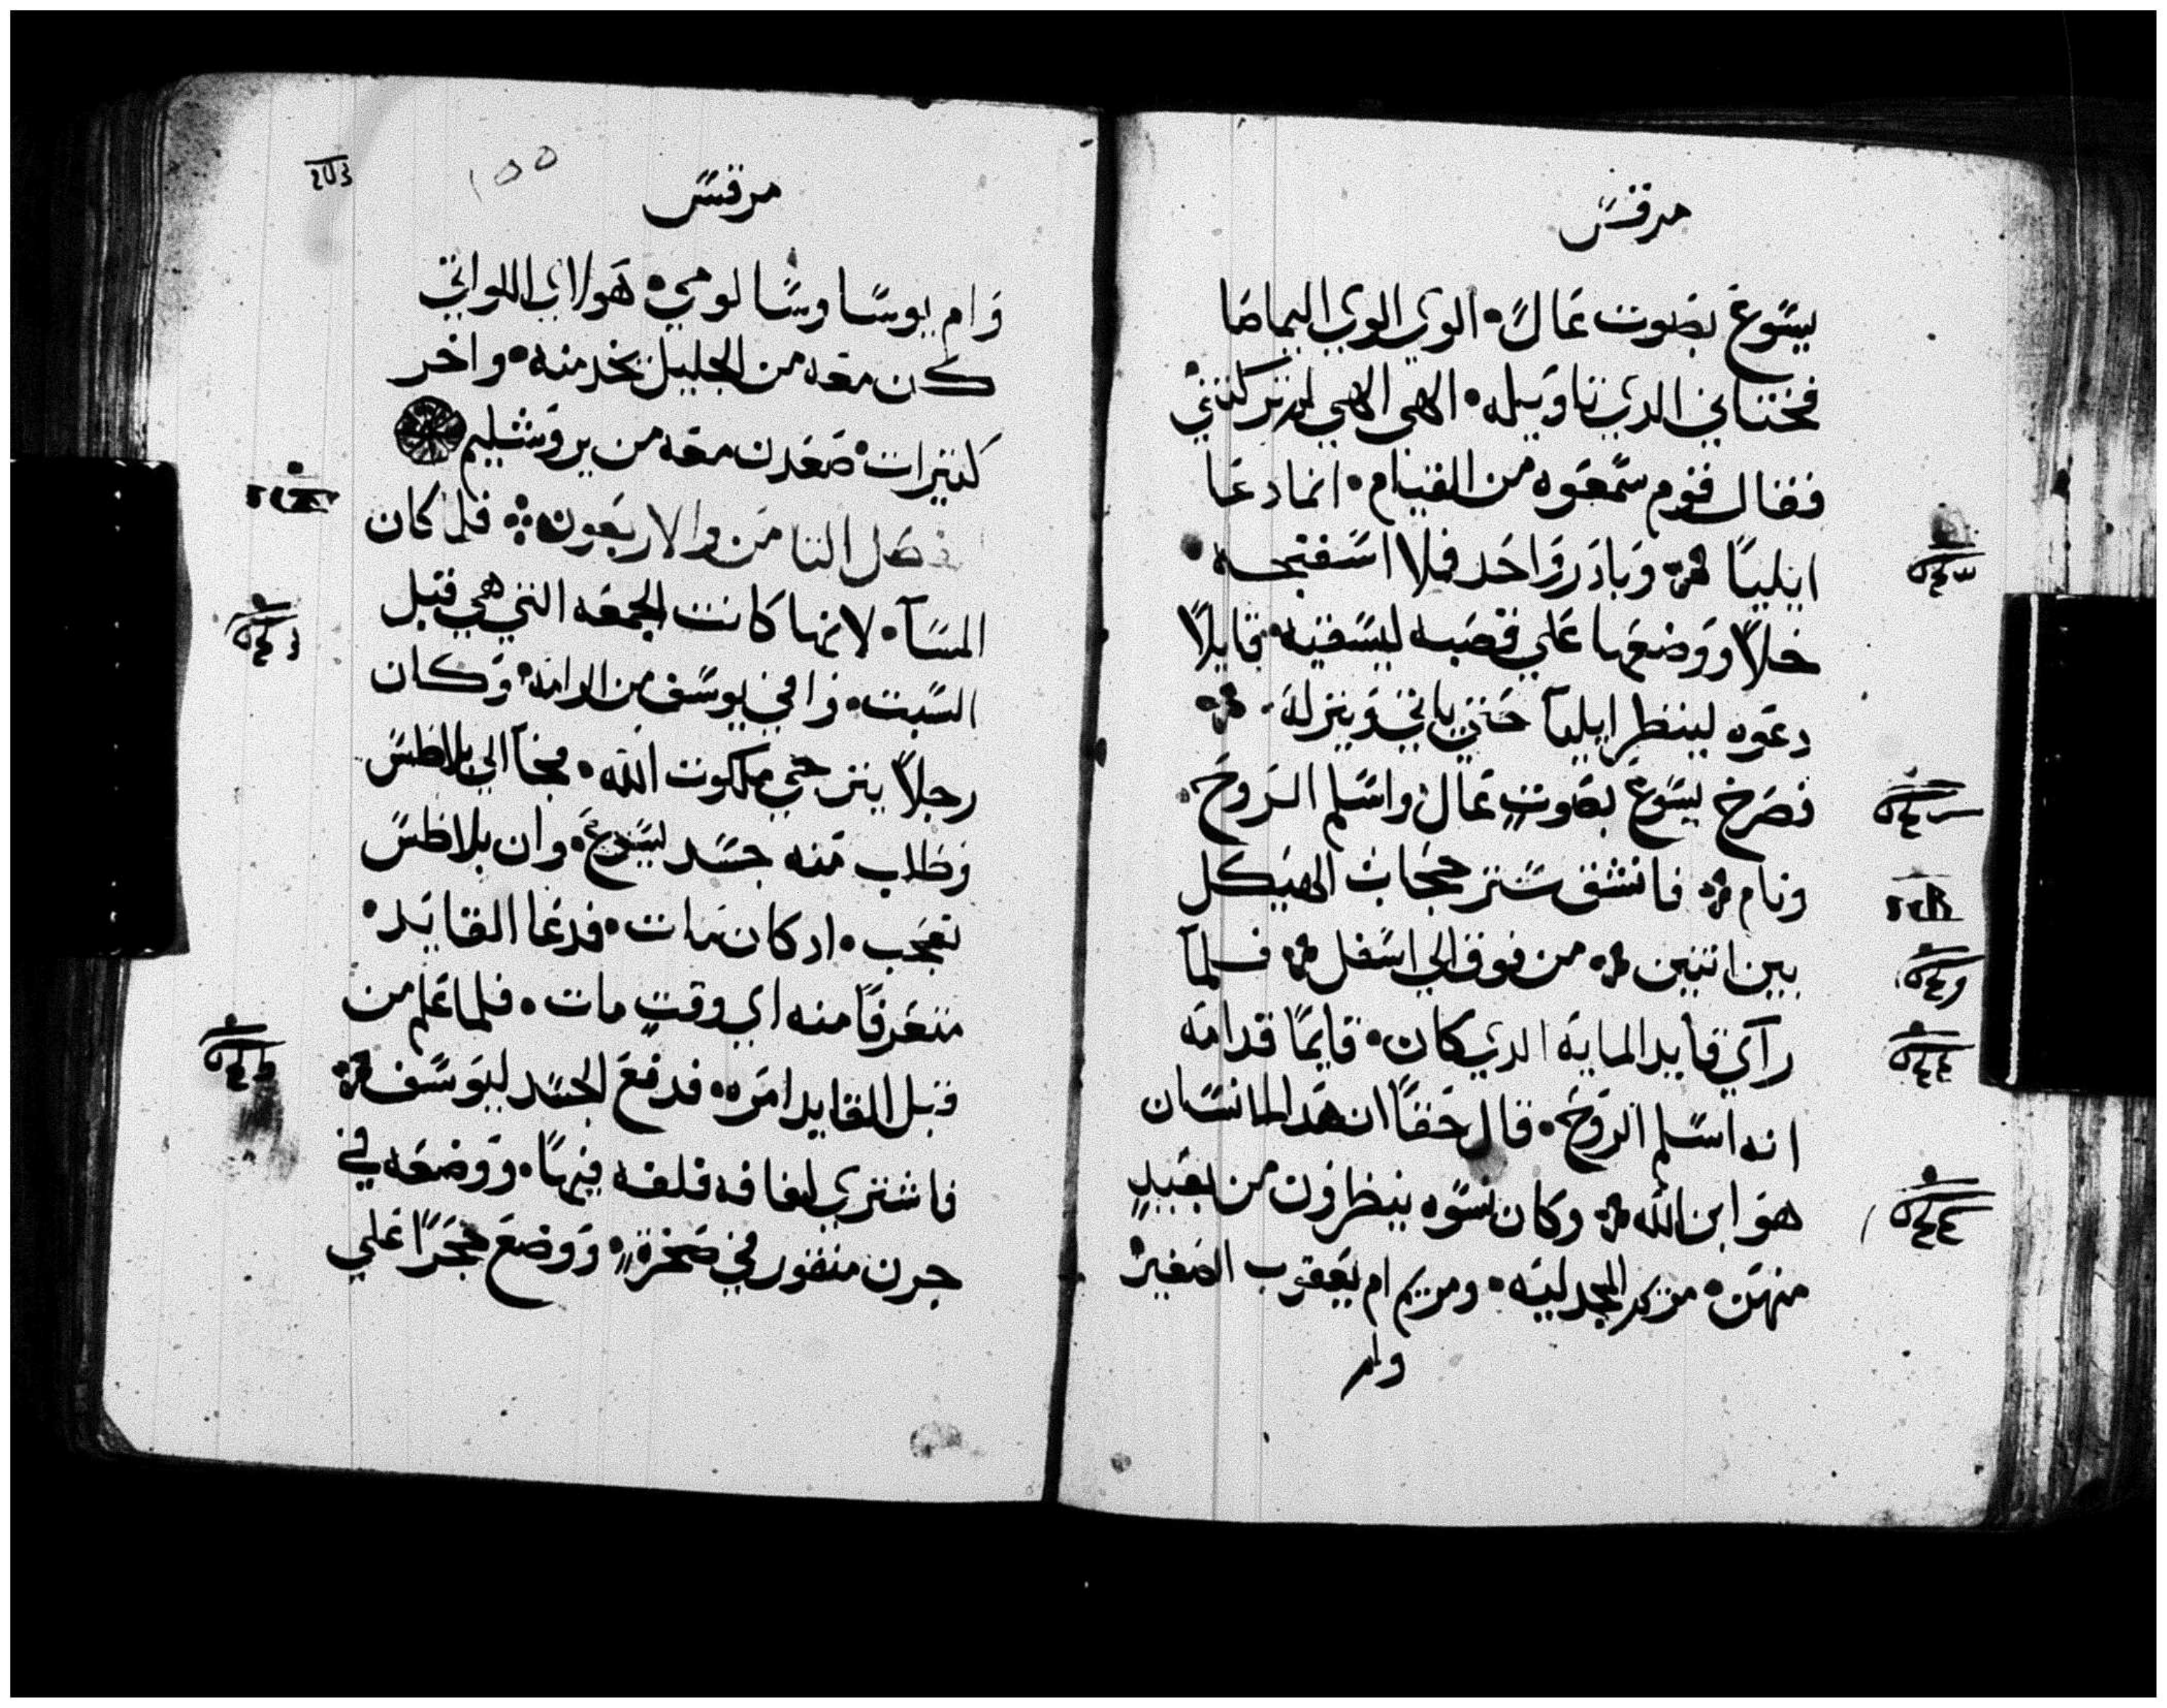 مرقس
يسوع بصوت عال الوي الوي اليماصا
فختاني الدي تاويله الهي الهي لم تركتني
فقال قوم سمعوه من القيام انما دعا
ايليا وبادر واحد فملا اسفنجه
خلا ووضعها علي قصبه ليسقيه قايلا
دعوه لينظر ايليا حتي ياتي وينزله
فصرخ يسوع بصوت عال واسلم الروح
ونام فانشق ستر حجاب الهيكل
بين اتنين من فوق الي اسفل فلما
رآي قايد المايه الدي كان قايما قدامه
انه اسلم الروح قال حقا ان هدا الانسان
هو ابن الله وكان نسوه ينظرون من بعيد
منهن مريم المجدليه ومريم ام يعقوب الصغير
وام
مرقس
١٥٥
وام يوسا وسالومي هولاي اللواتي
كن معه من الجليل يخدمنه واخر
كتيرات صعدن معه من يروشليم
فصل التامن والاربعون فلما كان
المسآ لانها كانت الجمعه التي هي قبل
السبت وافي يوسف من الرامه وكان
رجلا يترجي ملكوت الله فجآ الي بلاطس
وطلب منه جسد يسوع وان بلاطس
تعجب اد كان مات فدعا القايد
متعرفا منه اي وقت مات فلما علم من
قبل القايد امره فدفع الجسد ليوسف
فاشتري لفافه فلفه فيها ووضعه في
جرن منقور في صخرة ووضع حجرا علي